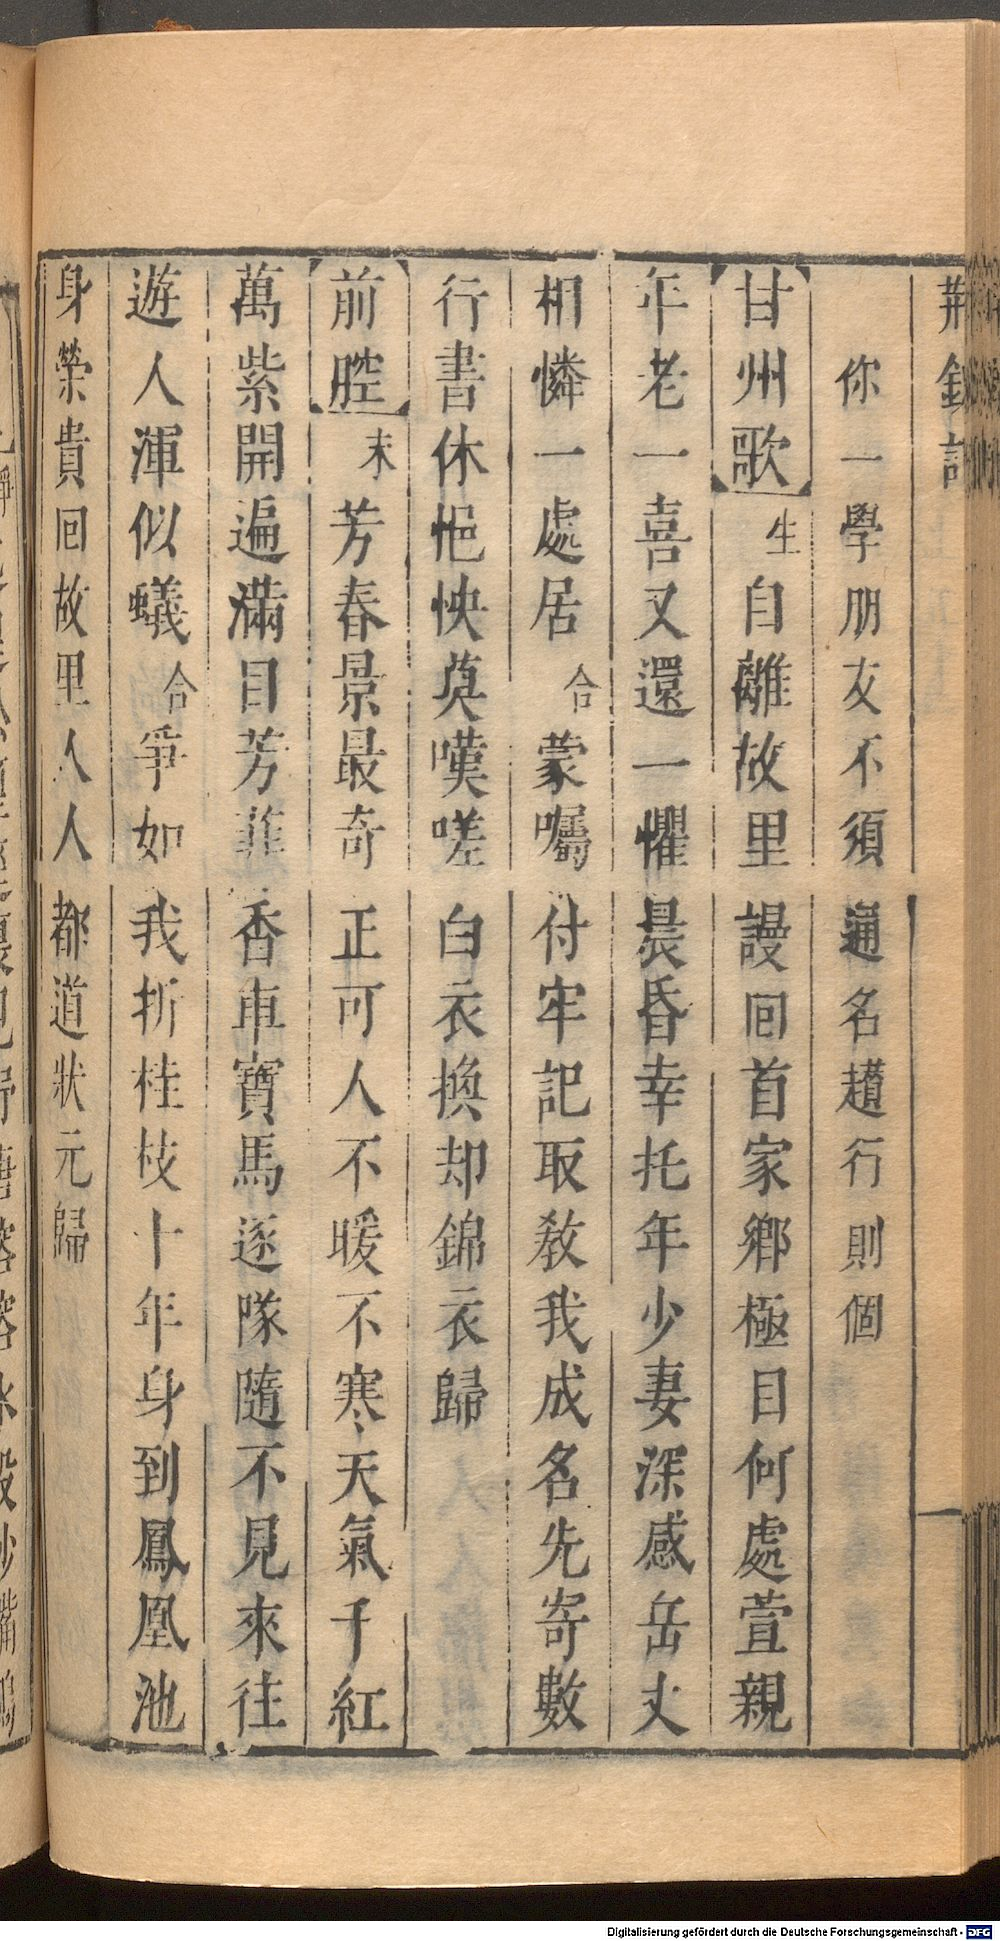 荆釵記
你一學朋友不須通名趲行則個
甘州歌 生 自離故里謾回首家鄉極目何處萱親
年老一喜又還一懼晨昏幸托年少妻深感岳丈
相憐一處居 合 蒙囑付牢記取教我成名先寄數
行書休悒怏莫嘆嗟白衣換却錦衣歸
前腔 末 芳春景最奇正可人不暖不寒天氣千紅
萬紫開遍滿目芳菲香車寶馬逐隊隨不見來往
遊人渾似蟻 合 爭如我折桂枝十年身到鳳凰池
身榮貴回故里人人都道狀元歸
Digitalisierung gefördert durch die Deutsche Forschungsgemeinschaft - DFG